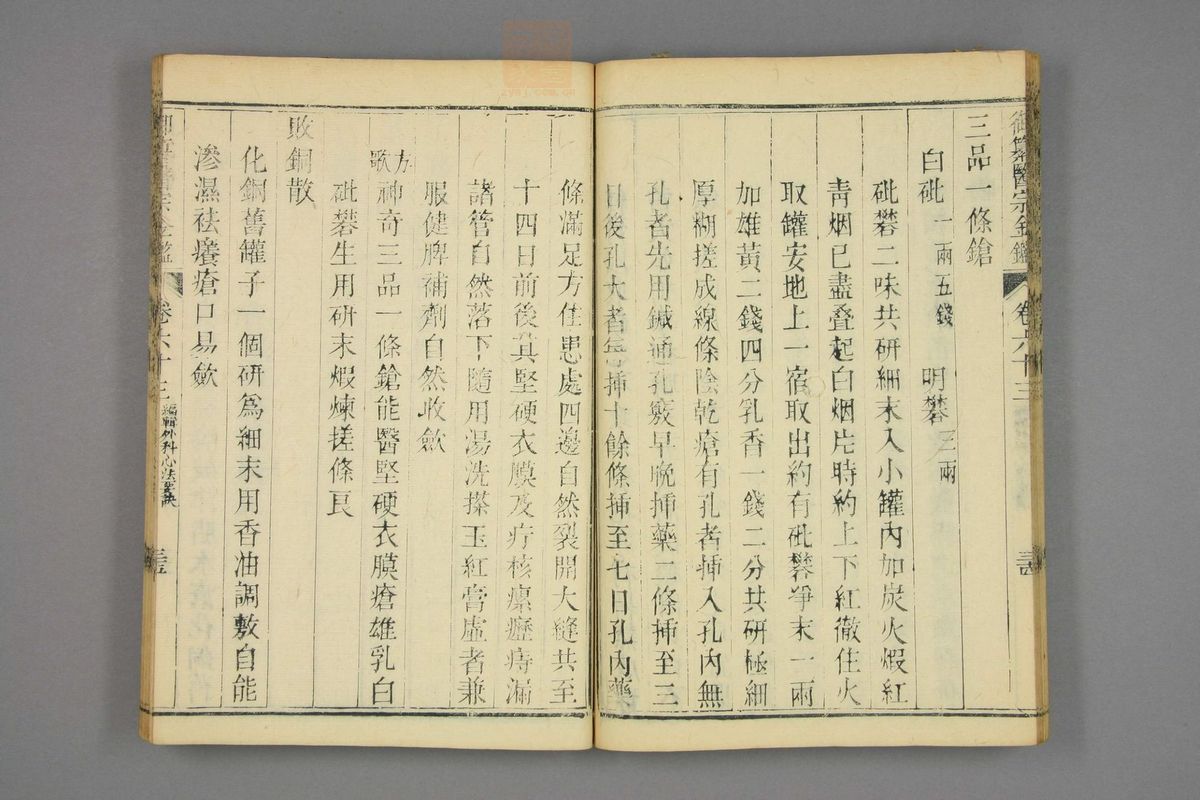 御纂醫宗金鑑 卷六十三 三
三品一條鎗
白砒一兩五錢 明礬三兩
砒礬二味共研細末入小罐內加炭火煆紅
靑烟已盡叠起白烟片時約上下紅徹住火
取罐安地上一宿取出約有砒礬爭末一兩
加雄黃二錢四分乳香一錢二分共研極細
厚糊搓成線條陰乾瘡有孔者挿入孔內無
孔者先用鍼通孔竅早晚挿藥二條挿至三
日後孔大者每挿十餘條挿至七日孔內藥
條滿足方住患處四邊自然裂開大縫共至
十四日前後其堅硬衣膜及疔核瘰癧痔漏
諸管自然落下隨用湯洗搽玉紅膏虛者兼
服健脾補劑自然收斂
方歌
神奇三品一條鎗能醫堅硬衣膜瘡雄乳白
砒礬生用研末煆煉搓條良
敗銅散
化銅舊罐子一個研爲細末用香油調敷自能
滲濕祛癢瘡口易斂
卷六十三 編輯外科心法要訣